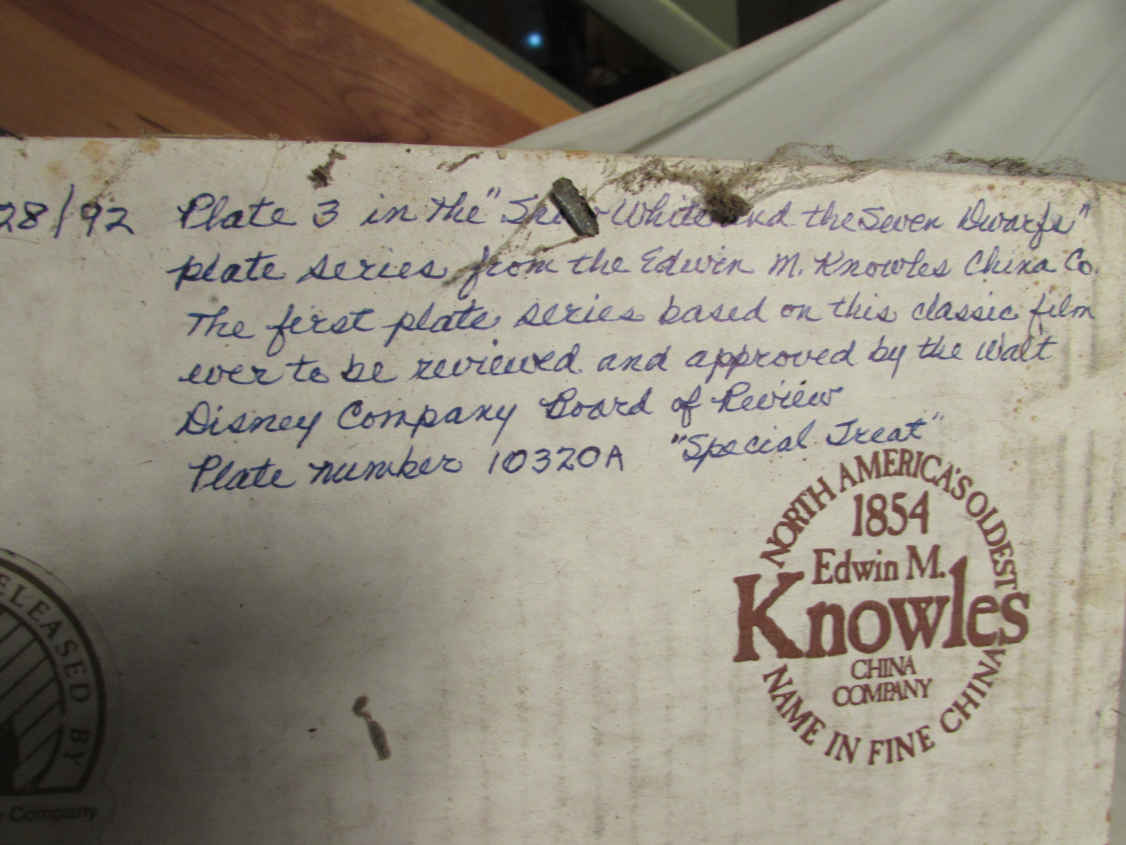 28/92 Plate 3 in the "Snow White and the Seven Dwarfs"
plate series from the Edwin M. Knowles China Co.
The first plate series based on this classic film
ever to be reviewed and approved by the Walt
Disney Company Board of Review
Plate number 10320A "Special Treat"
NORTH AMERICA'S OLDEST
1854
Edwin M.
Knowles
CHINA
COMPANY
NAME IN FINE CHINA
ELEASED BY
Company